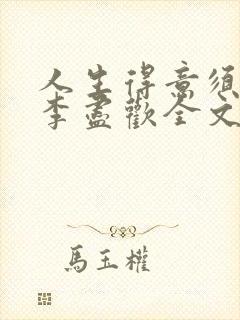 人生得意須
李盡歡全文
馬玉權